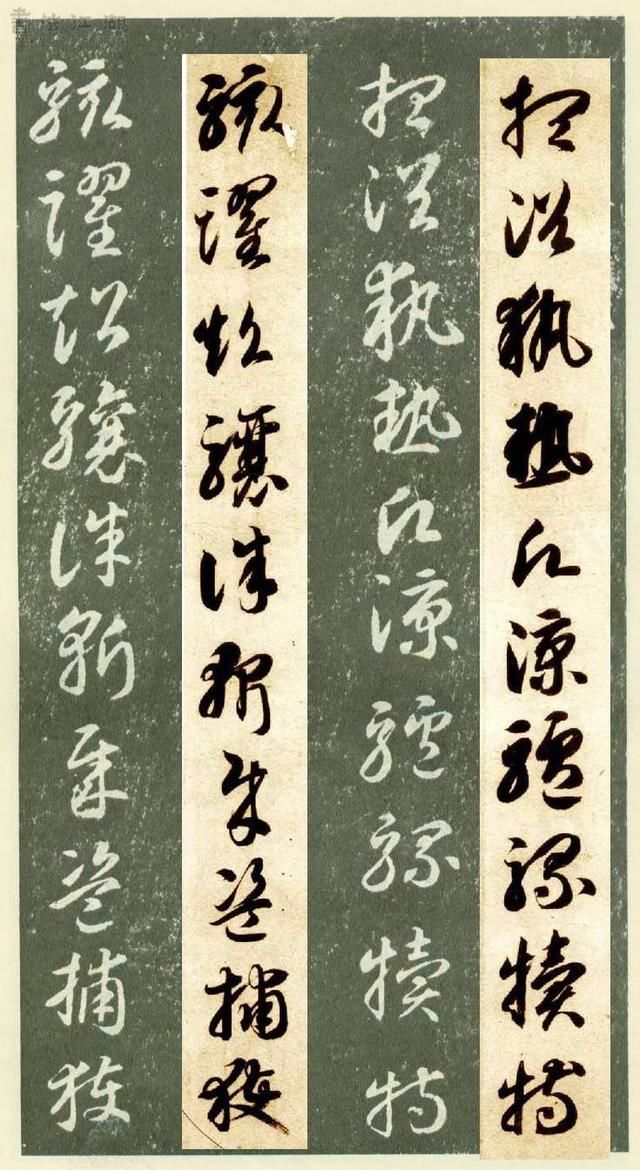 想浴執熱願涼驢騾犢特
想浴執熱願涼驢騾犢特
駭躍超驤誅斬賊盜捕獲
駭躍超驤誅斬賊盜捕獲